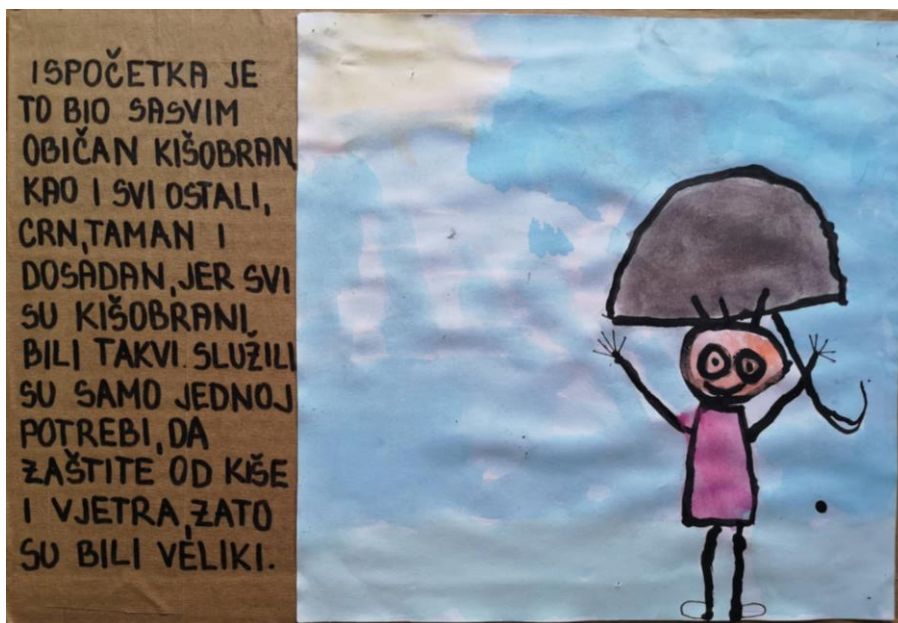 ISPOČETKA JE
TO BIO SASVIM
OBIČAN KIŠOBRAN,
KAO I SVI OSTALI,
CRN, TAMAN I
DOSADAN, JER SVI
SU KIŠOBRANI
BILI TAKVI. SLUŽILI
SU SAMO JEDNOJ
POTREBI, DA
ZAŠTITE OD KIŠE
I VJETRA, ZATO
SU BILI VELIKI.